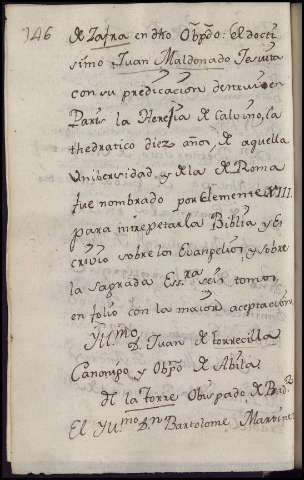 146
de Zafra en dho Obpdo: el docti
simo Juan Maldonado Jesuita
con su predicacion detuvo en
Paris la Heregia de Calvino, la
thedratico diez años, de aquella
Universidad y de la de Roma
fue nombrado por Clemente XIII.
para intrepetar la Biblia y es
crivio sobre los Evangelios, y sobre
la sagrada Essra seis tomos
en folio con la maior aceptacion.
Yllmo D. Juan de torrecilla
Canonigo y Obpo de Abila.
de la Torre Obispado de Badz
El Yllmo Dn Bartolome Martine